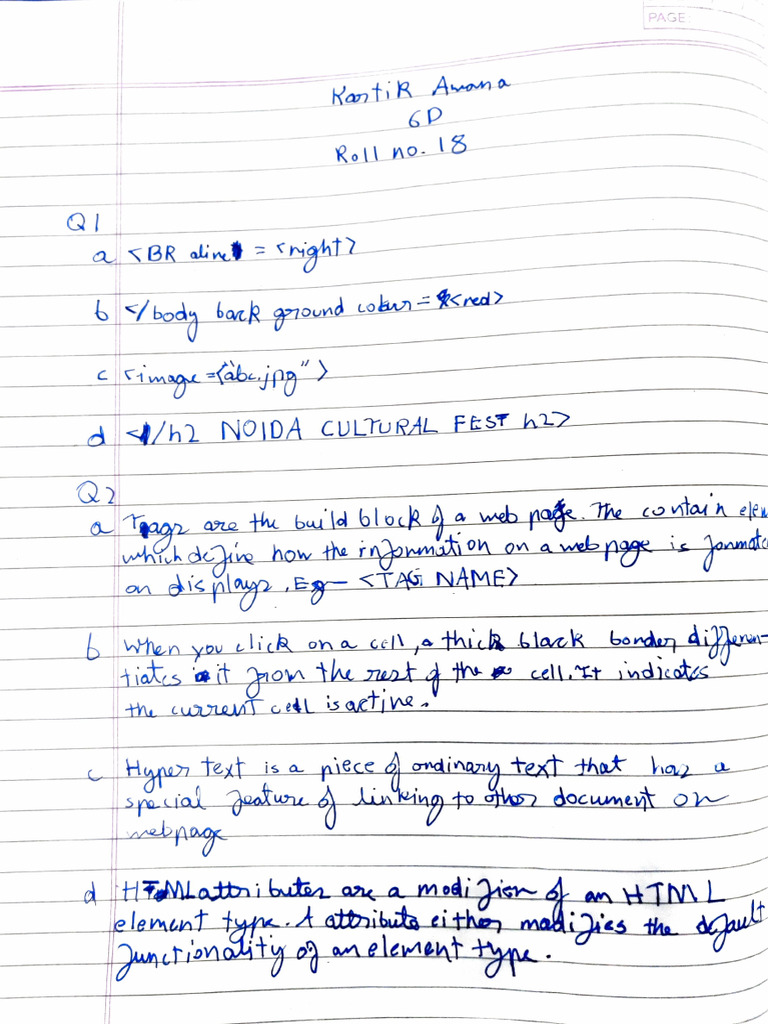 PAGE:
Kartik Awana
6D
Roll no. 18
Q1
a <BR aline = <right>
b </body back ground colour = <red>
c <image = <"abc.jpg" >
d </h2 NOIDA CULTURAL FEST h2>
Q2
a Tags are the build block of a web page. The contain elem
which define how the information on a web page is formatte
on displays. Eg— <TAG NAME>
b When you click on a cell, a thick black border differen-
tiates it from the rest of the cell. It indicates
the current cell is active.
c Hyper text is a piece of ordinary text that has a
special feature of linking to other document on
webpage
d HTML attributes are a modifier of an HTML
element type. A attribute either modifies the default
functionality of an element type.